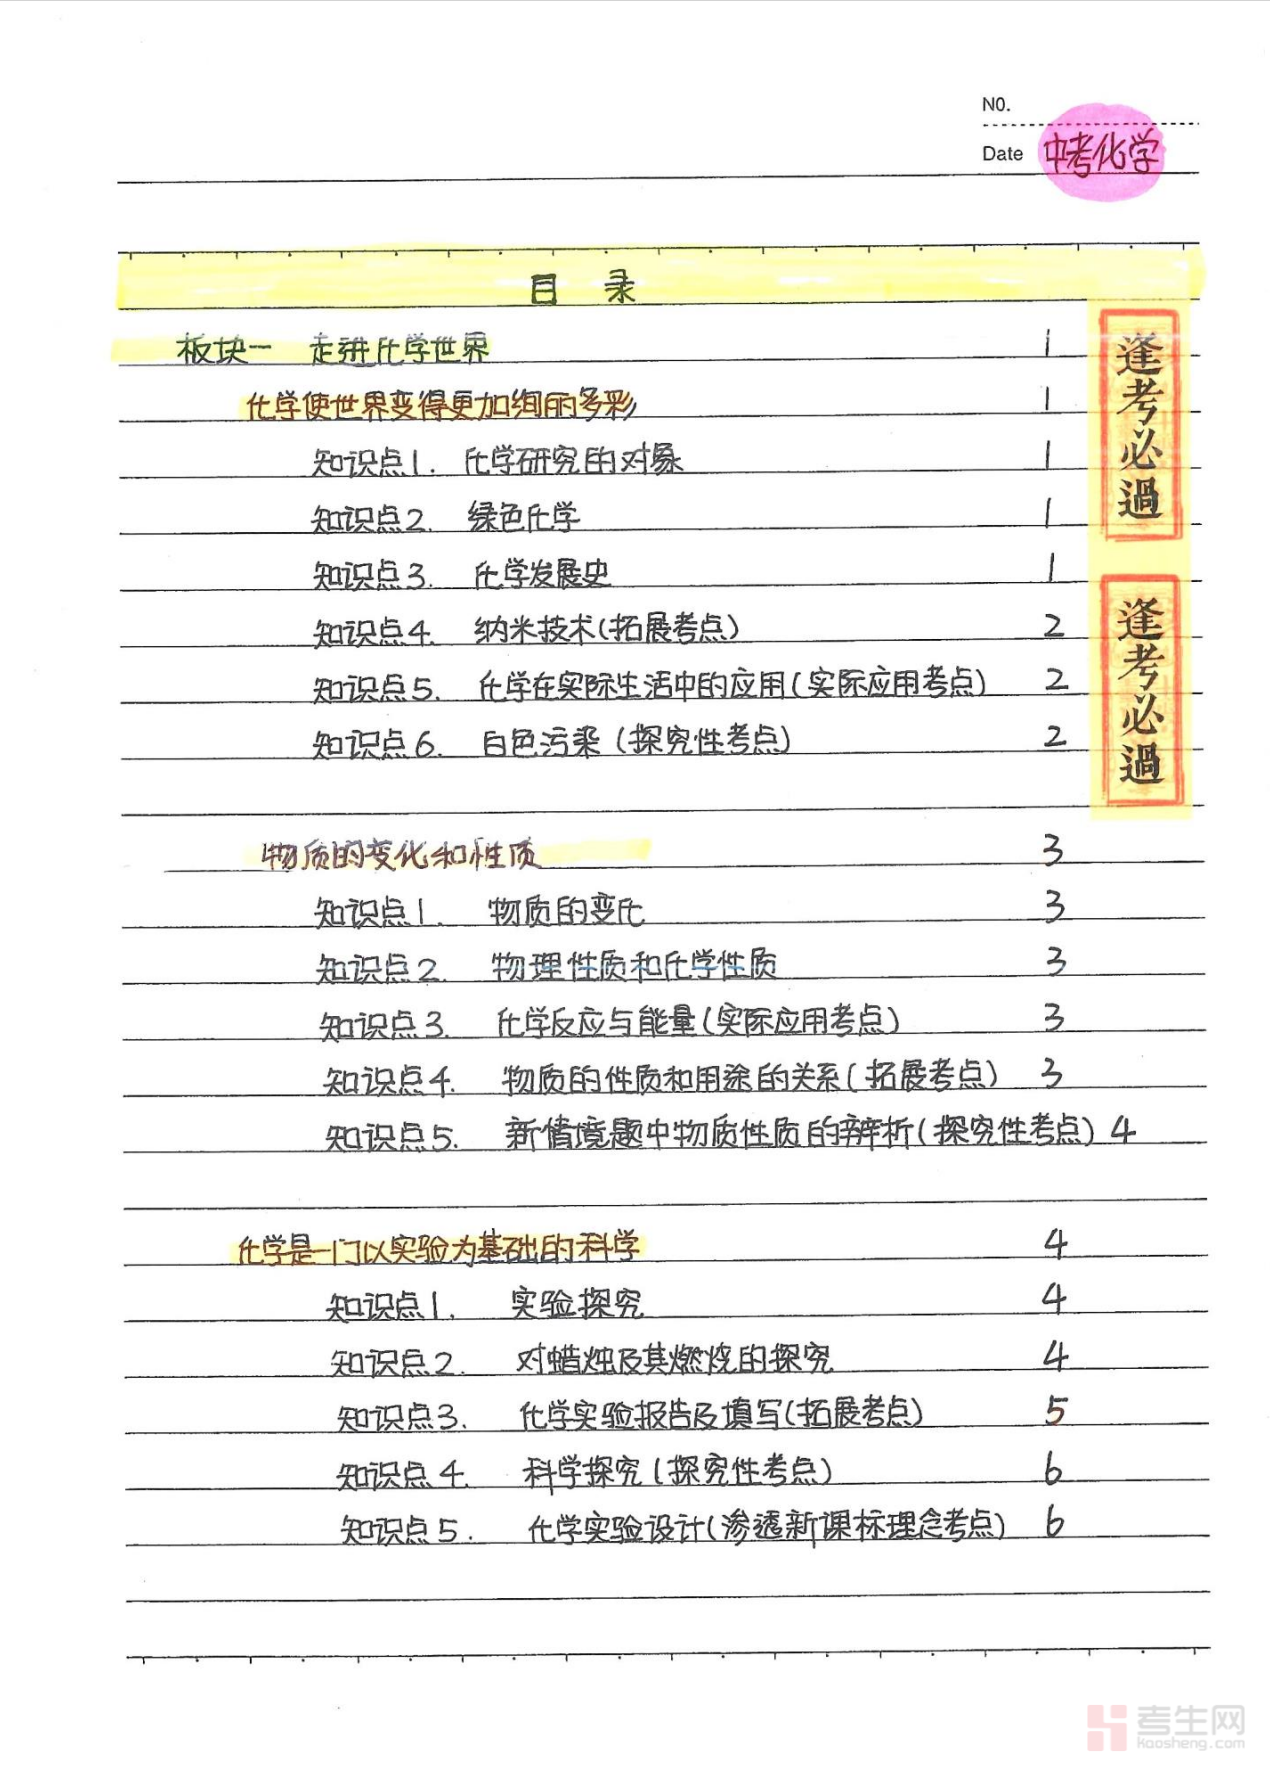 NO.
Date 中考化学
目 录
板块一 走进化学世界 1
化学使世界变得更加绚丽多彩 1
知识点1. 化学研究的对象 1
知识点2. 绿色化学 1
知识点3. 化学发展史 1
知识点4. 纳米技术(拓展考点) 2
知识点5. 化学在实际生活中的应用(实际应用考点) 2
知识点6. 白色污染(探究性考点) 2
逢考必過
逢考必過
物质的变化和性质 3
知识点1. 物质的变化 3
知识点2. 物理性质和化学性质 3
知识点3. 化学反应与能量(实际应用考点) 3
知识点4. 物质的性质和用途的关系(拓展考点) 3
知识点5. 新情境题中物质性质的辨析(探究性考点) 4
化学是一门以实验为基础的科学 4
知识点1. 实验探究 4
知识点2. 对蜡烛及其燃烧的探究 4
知识点3. 化学实验报告及填写(拓展考点) 5
知识点4. 科学探究(探究性考点) 6
知识点5. 化学实验设计(渗透新课标理念考点) 6
考生网
kaosheng.com